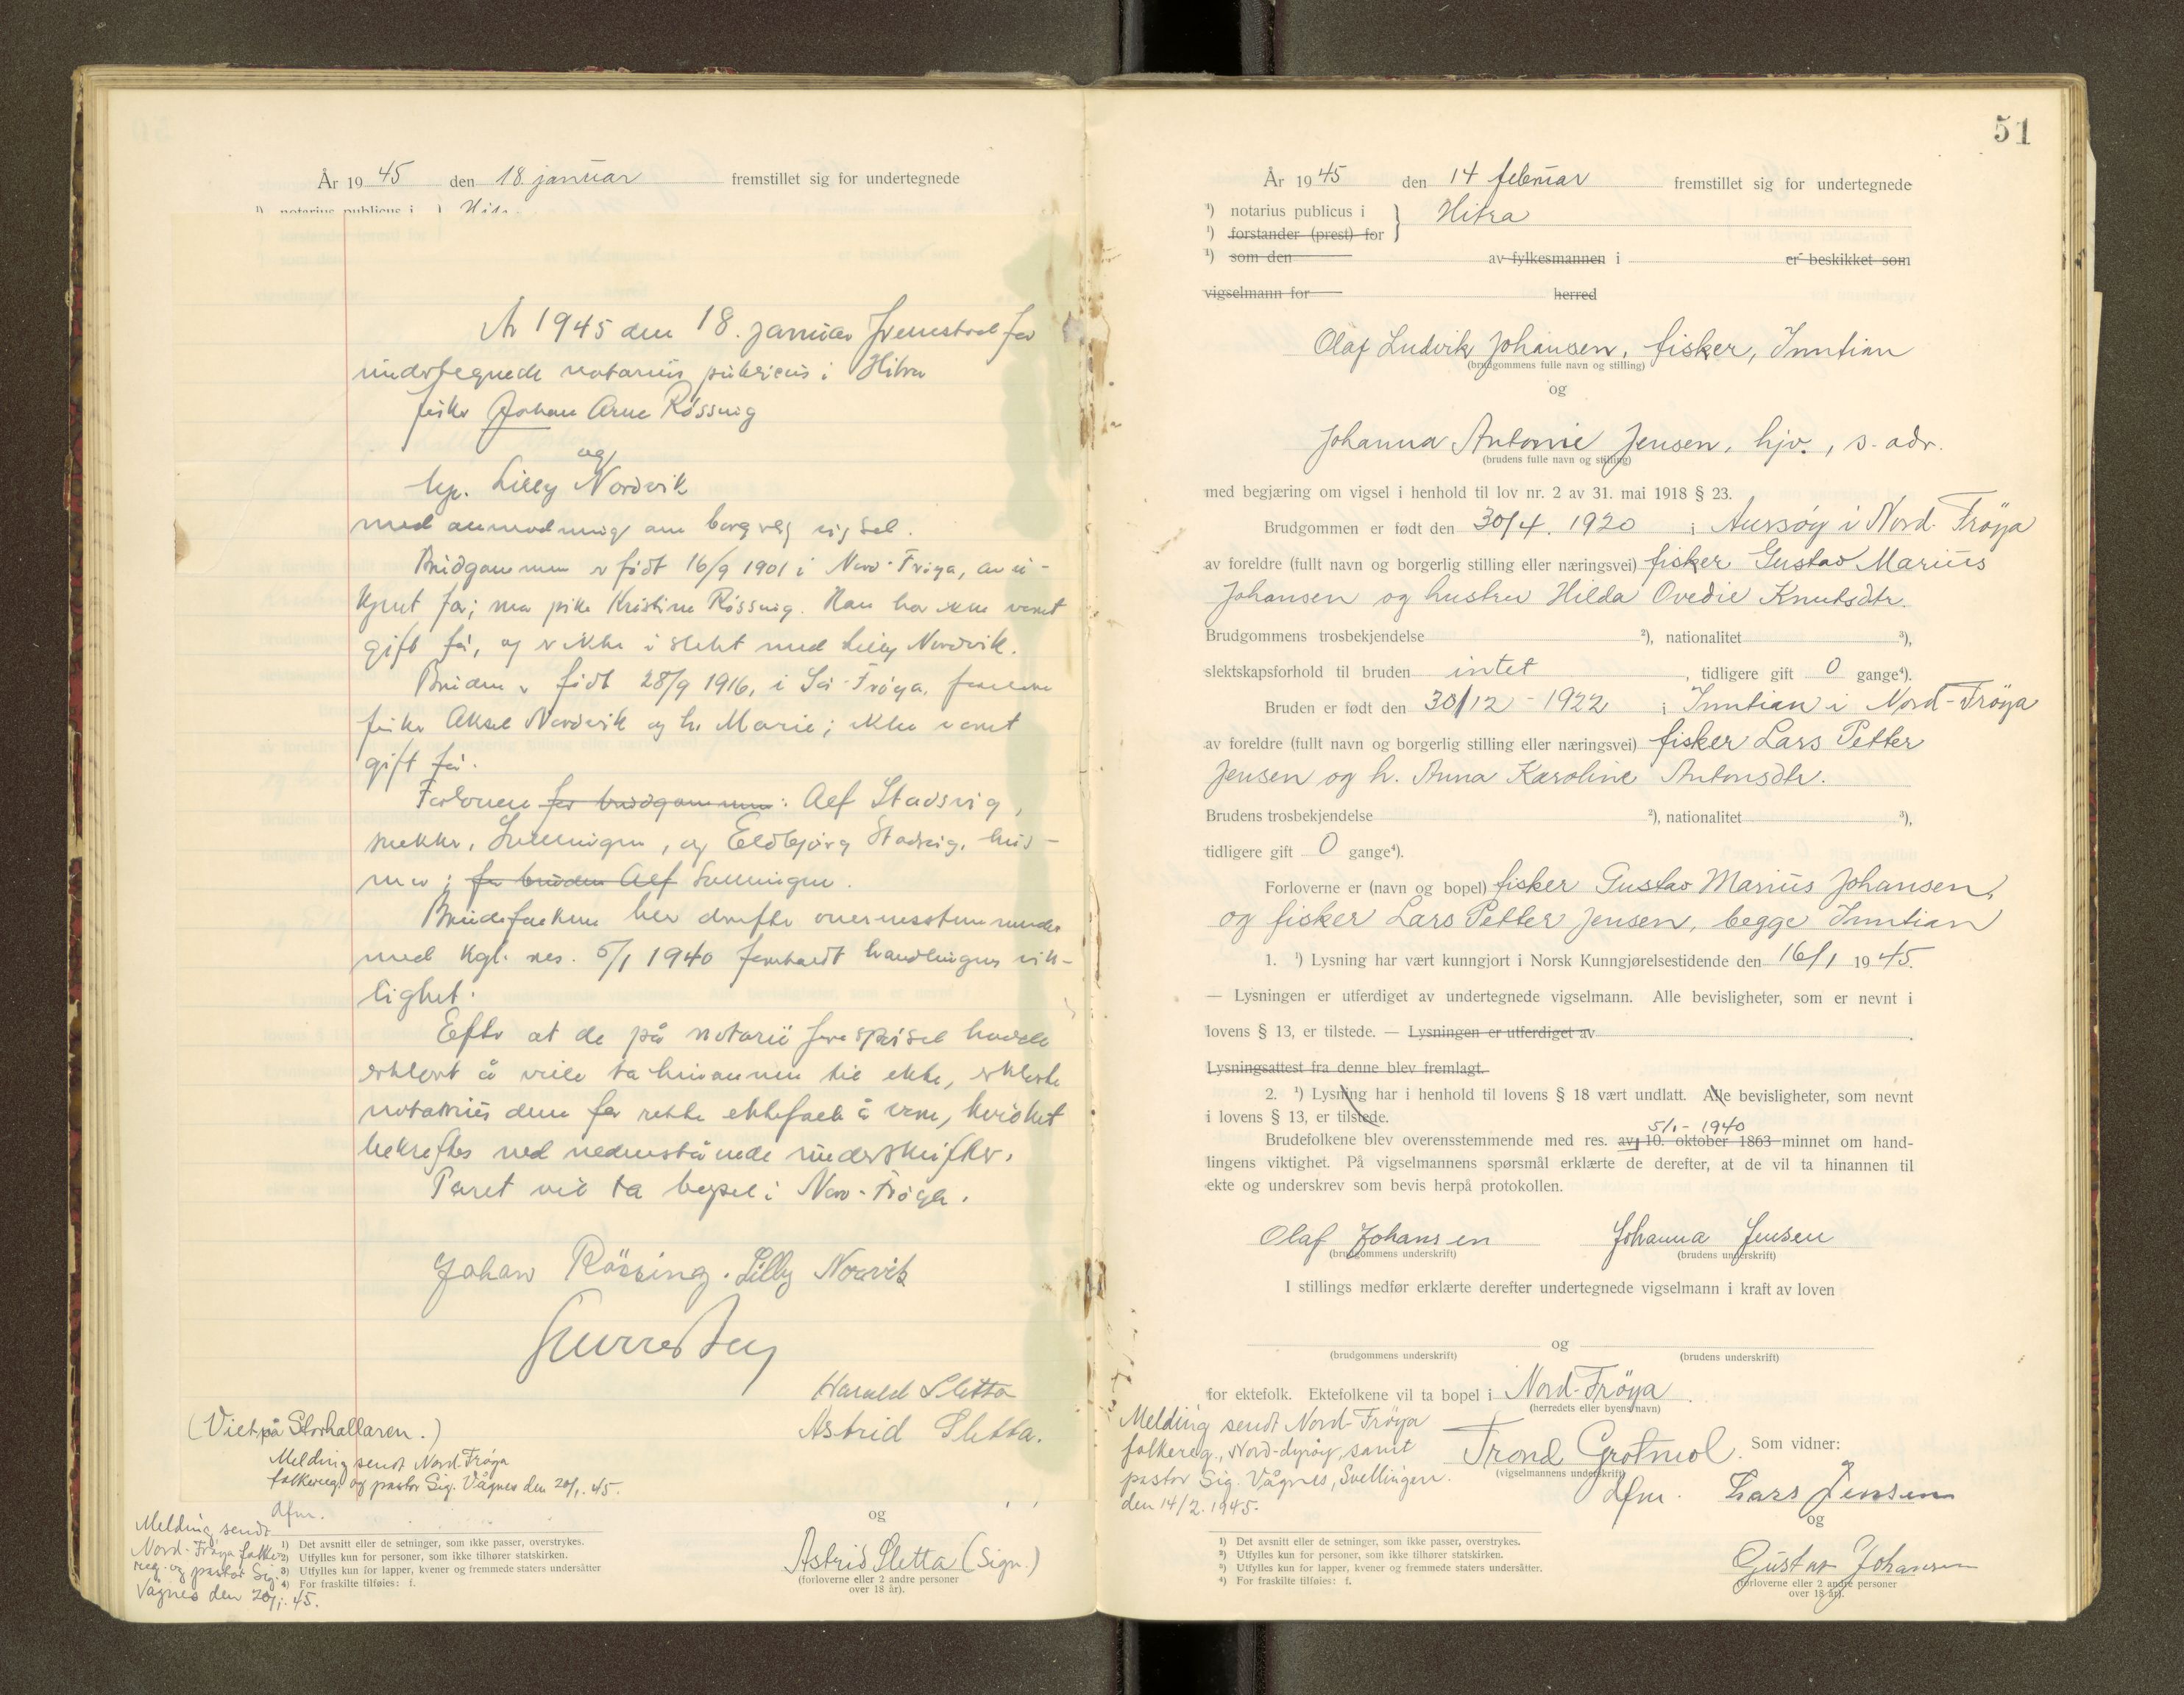 År 1945 den 18 januar fremstillet sig for undertegnede
¹) notarius publicus i
År 1945 den 18. januar fremstod for
undertegnede notarius publicus i Hitra
fisker Johan Arne Røssvig
og
hp. Lilly Nordvik
med anmodning om borgerlig vigsel.
Brudgommen er født 16/9 1901 i Nord-Frøya, av u-
kjent far; mor pike Kristine Røssvig. Han har ikke været
gift før, og er ikke i slekt med Lilly Nordvik.
Bruden er født 28/9 1916, i Sør-Frøya, foreldre
fisker Aksel Nordvik og h. Marie; ikke været
gift før.
Forlovere for brudgommen: Alf Stadsvig,
snekker, Svellingen, og Eldbjørg Stadsvig, hus-
mor; for bruden Alf Svellingen.
Brudefolkene blev derefter overensstemmende
med kgl. res. 5/1 1940 foreholdt handlingens vik-
tighet.
Efter at de på notarii forespørsel hadde
erklært å ville ta hinannen til ekte, erklærte
notarius dem for rette ektefolk å være, hvilket
bekreftes ved nedenstående underskrifter.
Paret vil ta bopel i Nord-Frøya.
Johan Røssing. Lilly Norvik
Harald Sletta
Astrid Sletta.
(Viet på Storhallaren.)
Melding sendt Nord-Frøya
folkereg. og pastor Sig. Vågnes den 20/1. 45.
dfm.
Melding sendt
Nord-Frøya folke-
reg. og pastor Sig.
Vågnes den 20/1. 45.
og
Astrid Sletta (Sign.)
(forloverne eller 2 andre personer
over 18 år).
¹) Det avsnitt eller de setninger, som ikke passer, overstrykes.
²) Utfylles kun for personer, som ikke tilhører statskirken.
³) Utfylles kun for lapper, kvener og fremmede staters undersåtter
⁴) For fraskilte tilføies: f.
51
År 1945 den 14 februar fremstillet sig for undertegnede
¹) notarius publicus i } Hitra
¹) forstander (prest) for
¹) som den av fylkesmannen i er beskikket som
vigselmann for herred
Olaf Ludvik Johansen, fisker, Inntian
(brudgommens fulle navn og stilling)
og
Johanna Antonie Jensen, hjv., s. adr.
(brudens fulle navn og stilling)
med begjæring om vigsel i henhold til lov nr. 2 av 31. mai 1918 § 23.
Brudgommen er født den 30/4. 1920 i Aursøy i Nord-Frøya
av foreldre (fullt navn og borgerlig stilling eller næringsvei) fisker Gustav Marius
Johansen og hustru Hilda Ovedie Knutsdtr.
Brudgommens trosbekjendelse ²), nationalitet ³),
slektskapsforhold til bruden intet, tidligere gift 0 gange⁴).
Bruden er født den 30/12 - 1922 i Inntian i Nord-Frøya
av foreldre (fullt navn og borgerlig stilling eller næringsvei) fisker Lars Petter
Jensen og h. Anna Karoline Antonsdtr.
Brudens trosbekjendelse ²), nationalitet ³),
tidligere gift 0 gange⁴).
Forloverne er (navn og bopel) fisker Gustav Marius Johansen,
og fisker Lars Petter Jensen, begge Inntian
1. ¹) Lysning har vært kunngjort i Norsk Kunngjørelsestidende den 16/1 1945.
— Lysningen er utferdiget av undertegnede vigselmann. Alle bevisligheter, som er nevnt i
lovens § 13, er tilstede. — Lysningen er utferdiget av
Lysningsattest fra denne blev fremlagt.
2. ¹) Lysning har i henhold til lovens § 18 vært undlatt. Alle bevisligheter, som nevnt
i lovens § 13, er tilstede.
5/1 - 1940
Brudefolkene blev overensstemmende med res. av 10. oktober 1863 minnet om hand-
lingens viktighet. På vigselmannens spørsmål erklærte de derefter, at de vil ta hinannen til
ekte og underskrev som bevis herpå protokollen.
Olaf Johansen Johanna Jensen
(brudgommens underskrift) (brudens underskrift)
I stillings medfør erklærte derefter undertegnede vigselmann i kraft av loven
og
(brudgommens underskrift) (brudens underskrift)
for ektefolk. Ektefolkene vil ta bopel i Nord-Frøya.
(herredets eller byens navn)
Melding sendt Nord-Frøya
folkereg., Nord-dyrøy, samt
pastor Sig. Vågnes, Svellingen.
den 14/2. 1945.
Trond Grøtmol Som vidner:
(vigselmannens underskrift)
dfm. Lars Jensen
og
Gustav Johansen
(forloverne eller 2 andre personer
over 18 år).
¹) Det avsnitt eller de setninger, som ikke passer, overstrykes.
²) Utfylles kun for personer, som ikke tilhører statskirken.
³) Utfylles kun for lapper, kvener og fremmede staters undersåtter.
⁴) For fraskilte tilføies: f.